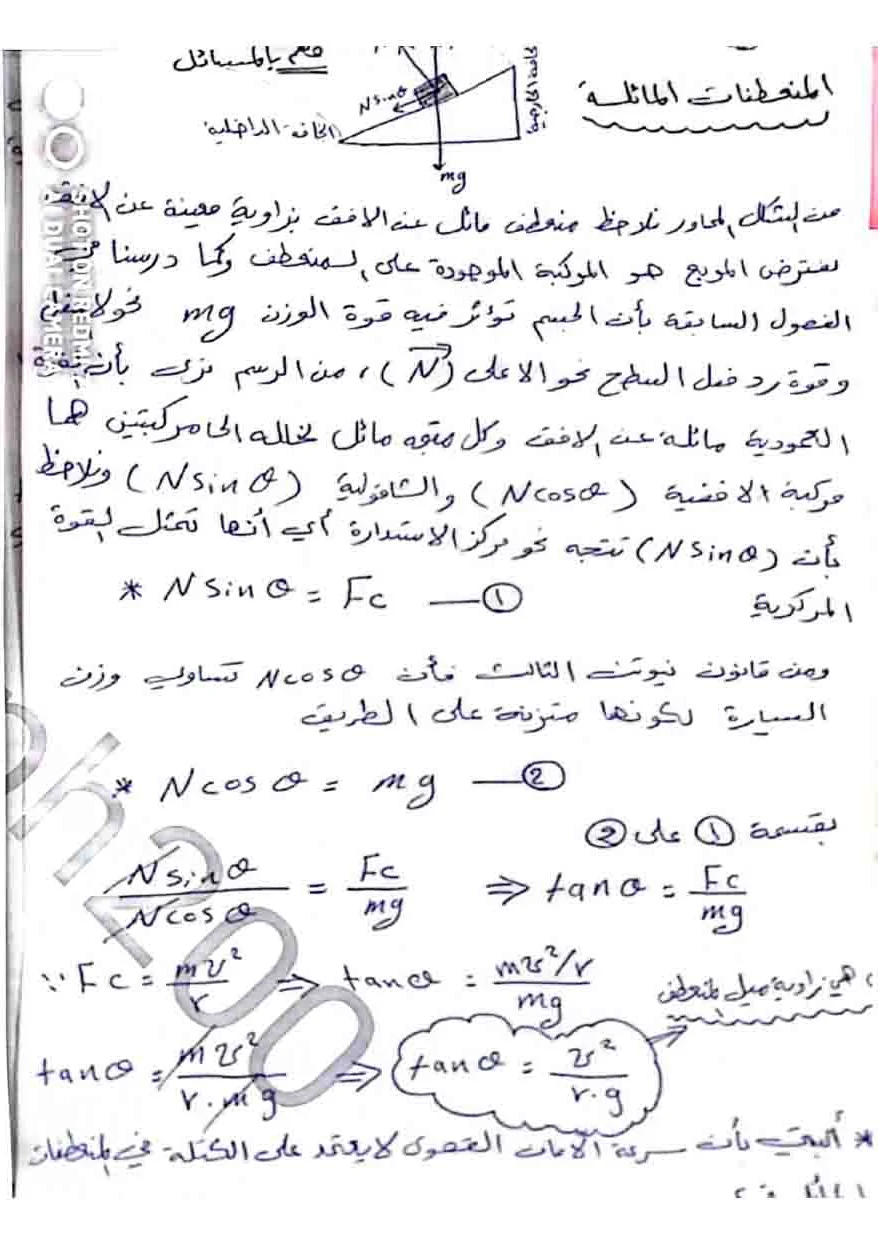 مهم بالمسائل
المنعطفات المائلة
N sinθ
الحافة الداخلية
الحافة الخارجية
mg
من الشكل المجاور نلاحظ منعطف مائل عن الافق بزاوية معينة عن الافق
نفترض المربع هو المركبة الموجودة على المنعطف وكما درسنا في
الفصول السابقة بأن الجسم تؤثر فيه قوة الوزن mg نحو الاسفل
وقوة رد فعل السطح نحو الاعلى (N)، من الرسم نرى بأن القوة
العمودية مائلة عن الافق وكل متجه مائل نحلله الى مركبتين هما
مركبة الافقية (N cosθ) والشاقولية (N sin θ) ونلاحظ
بأن (N sinθ) تتجه نحو مركز الاستدارة أي أنها تمثل القوة
المركزية
* N sin θ = Fc — ①
ومن قانون نيوتن الثالث فأن N cosθ تساوي وزن
السيارة لكونها متزنة على الطريق
* N cos θ = mg — ②
بقسمة ① على ②
N sin θ / N cos θ = Fc / mg ⇒ tan θ = Fc / mg
∵ Fc = mv² / r ⇒ tan θ = mv²/r / mg
هي زاوية ميل المنعطف
tan θ = mv² / r . mg ⇒ tan θ = v² / r . g
* أثبتي بأن سرعة الامان القصوى لا يعتمد على الكتلة في المنعطفات
SHOT ON REDMI
AI DUAL CAMERA